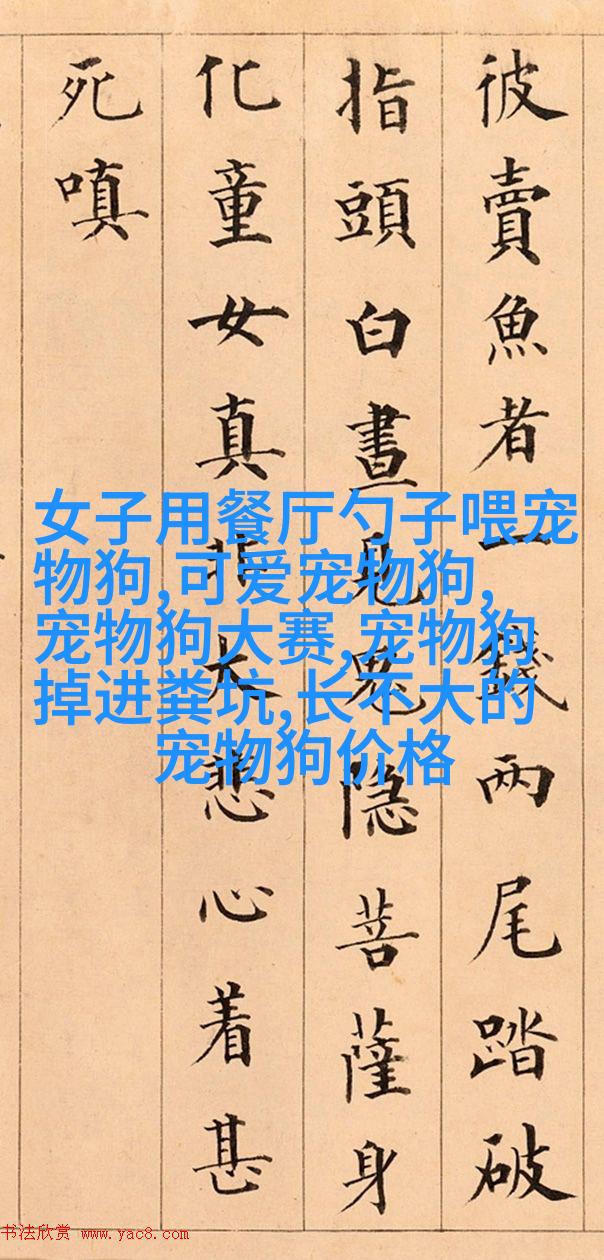 彼賣魚者一錢兩尾踏破
指頭白晝見鬼隐菩薩身
化童女真非大悲心着甚
死嗔
女子用餐厅勺子喂宠
物狗,可爱宠物狗,
宠物狗大赛,宠物狗
掉进粪坑,长不大的
宠物狗价格
书法欣赏 www.yac8.com